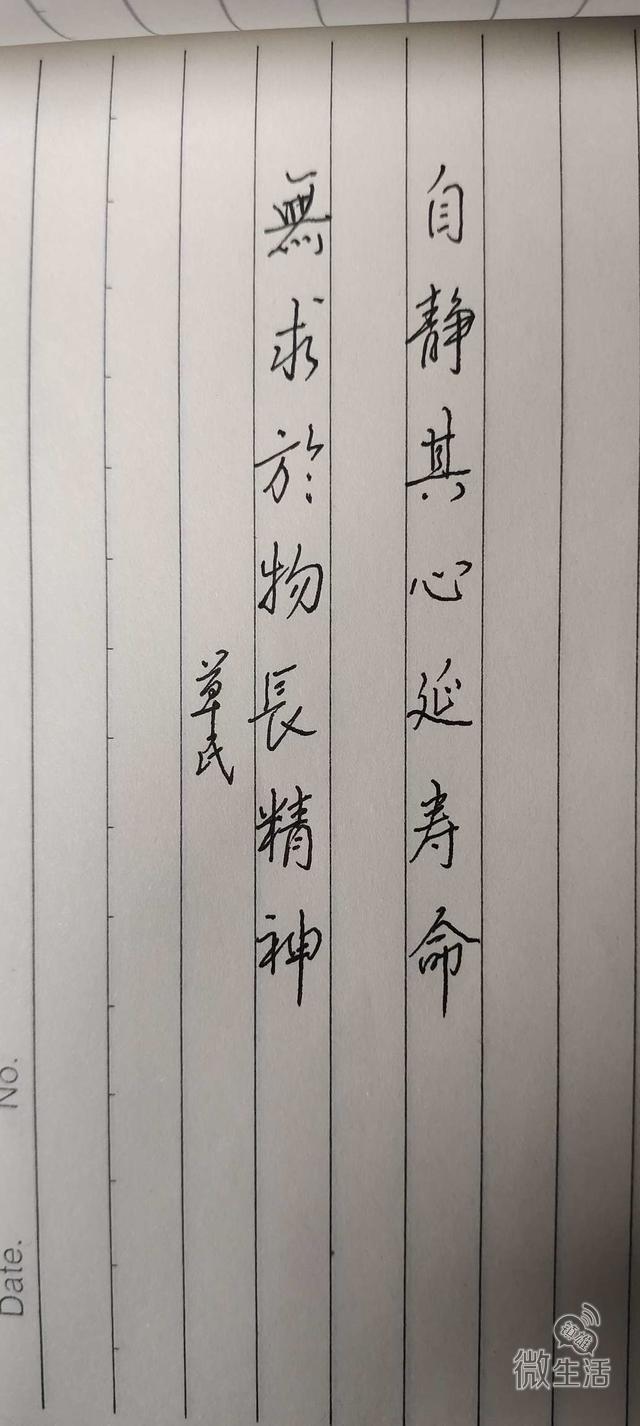 自静其心延寿命
無求於物長精神
草民
No.
Date.
镇雄
微生活